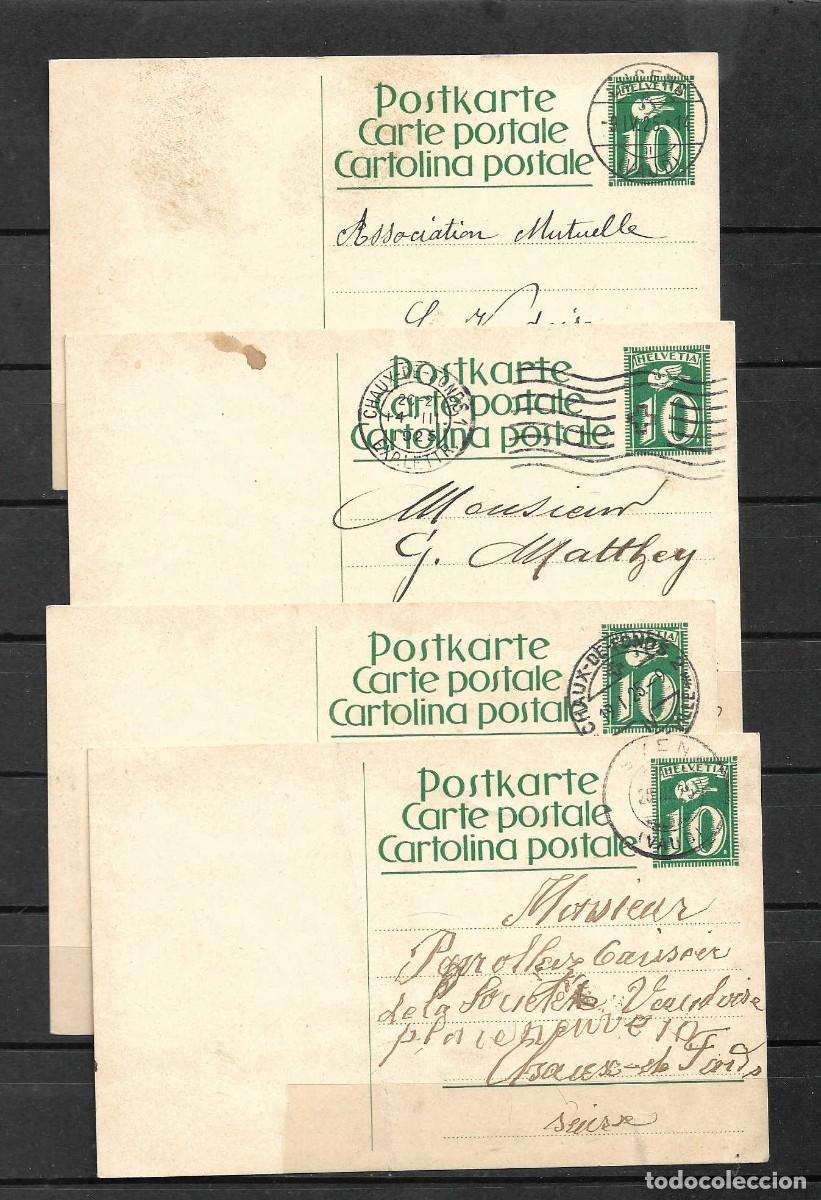 Postkarte
Carte postale
Cartolina postale
HELVETIA
10
Association Mutuelle
Postkarte
Carte postale
Cartolina postale
CHAUX-DE-FONDS 1
EXP. LETTR.
HELVETIA
10
Monsieur
G. Matthey
Postkarte
Carte postale
Cartolina postale
CHAUX-DE-FONDS 2
10
Postkarte
Carte postale
Cartolina postale
(VAUD)
HELVETIA
10
Monsieur
Caissier
de la Société Vaudoise
place neuve 10
Chaux-de-Fonds
Suisse
todocoleccion